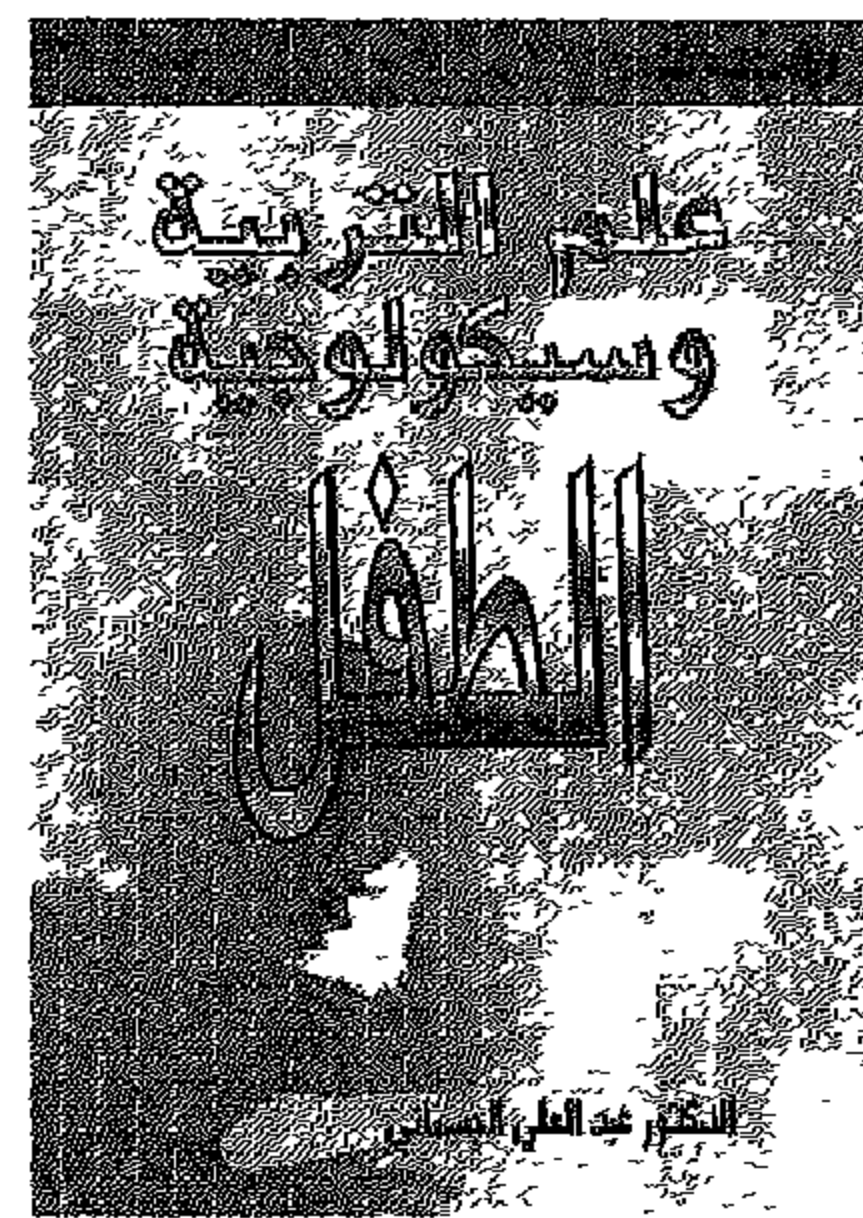 علم التربية
وسيكولوجية
الطفل
الدكتور عبد العلي الجسماني